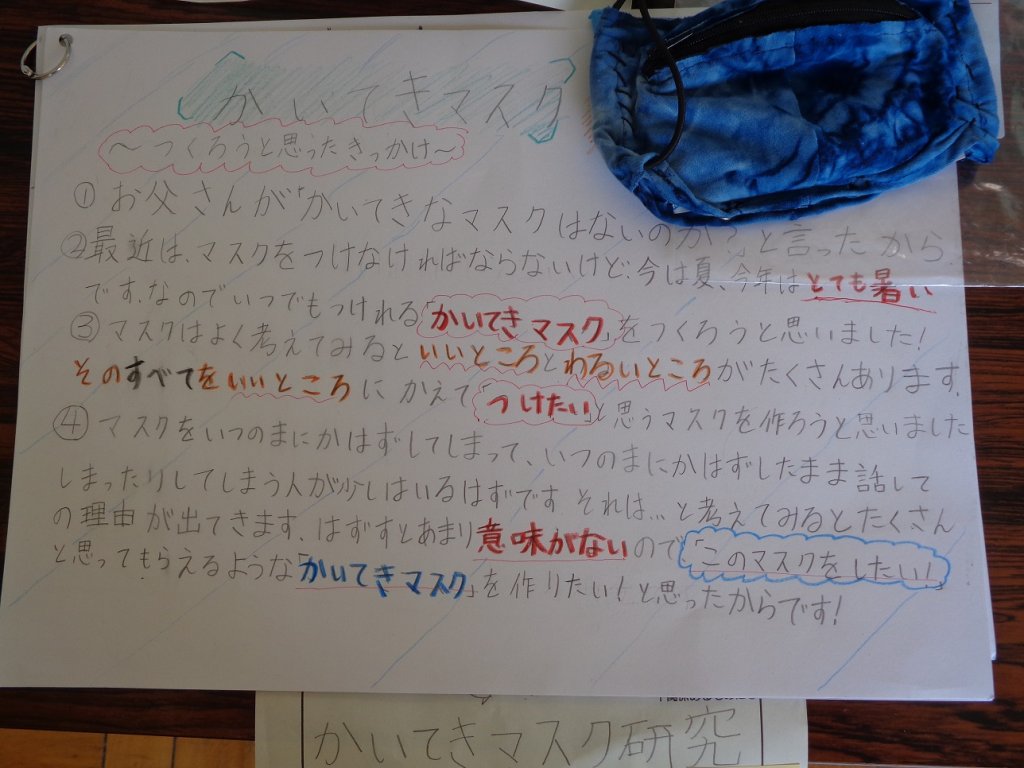 かいてきマスク
～つくろうと思うたきっかけ～
①お父さんが「かいてきなマスクはないのか?」と言ったから
②最近は、マスクをつけなければならないけど、今は夏、今年はとても暑い
です、なのでいつでもつけれる「かいてきマスク」をつくろうと思いました!
③マスクはよく考えてみるといいところとわるいところがたくさんあります、
そのすべてをいいところにかえて「つけたい」と思うマスクを作ろうと思いました
④マスクをいつのまにかはずしてしまって、いつのまにかはずしたまま話して
しまったりしてしまう人が少しはいるはずです それは…と考えてみるとたくさん
の理由が出てきます、はずすとあまり意味がないので「このマスクをしたい!」
と思ってもらえるような「かいてきマスク」を作りたい!と思ったからです!
かいてきマスク研究